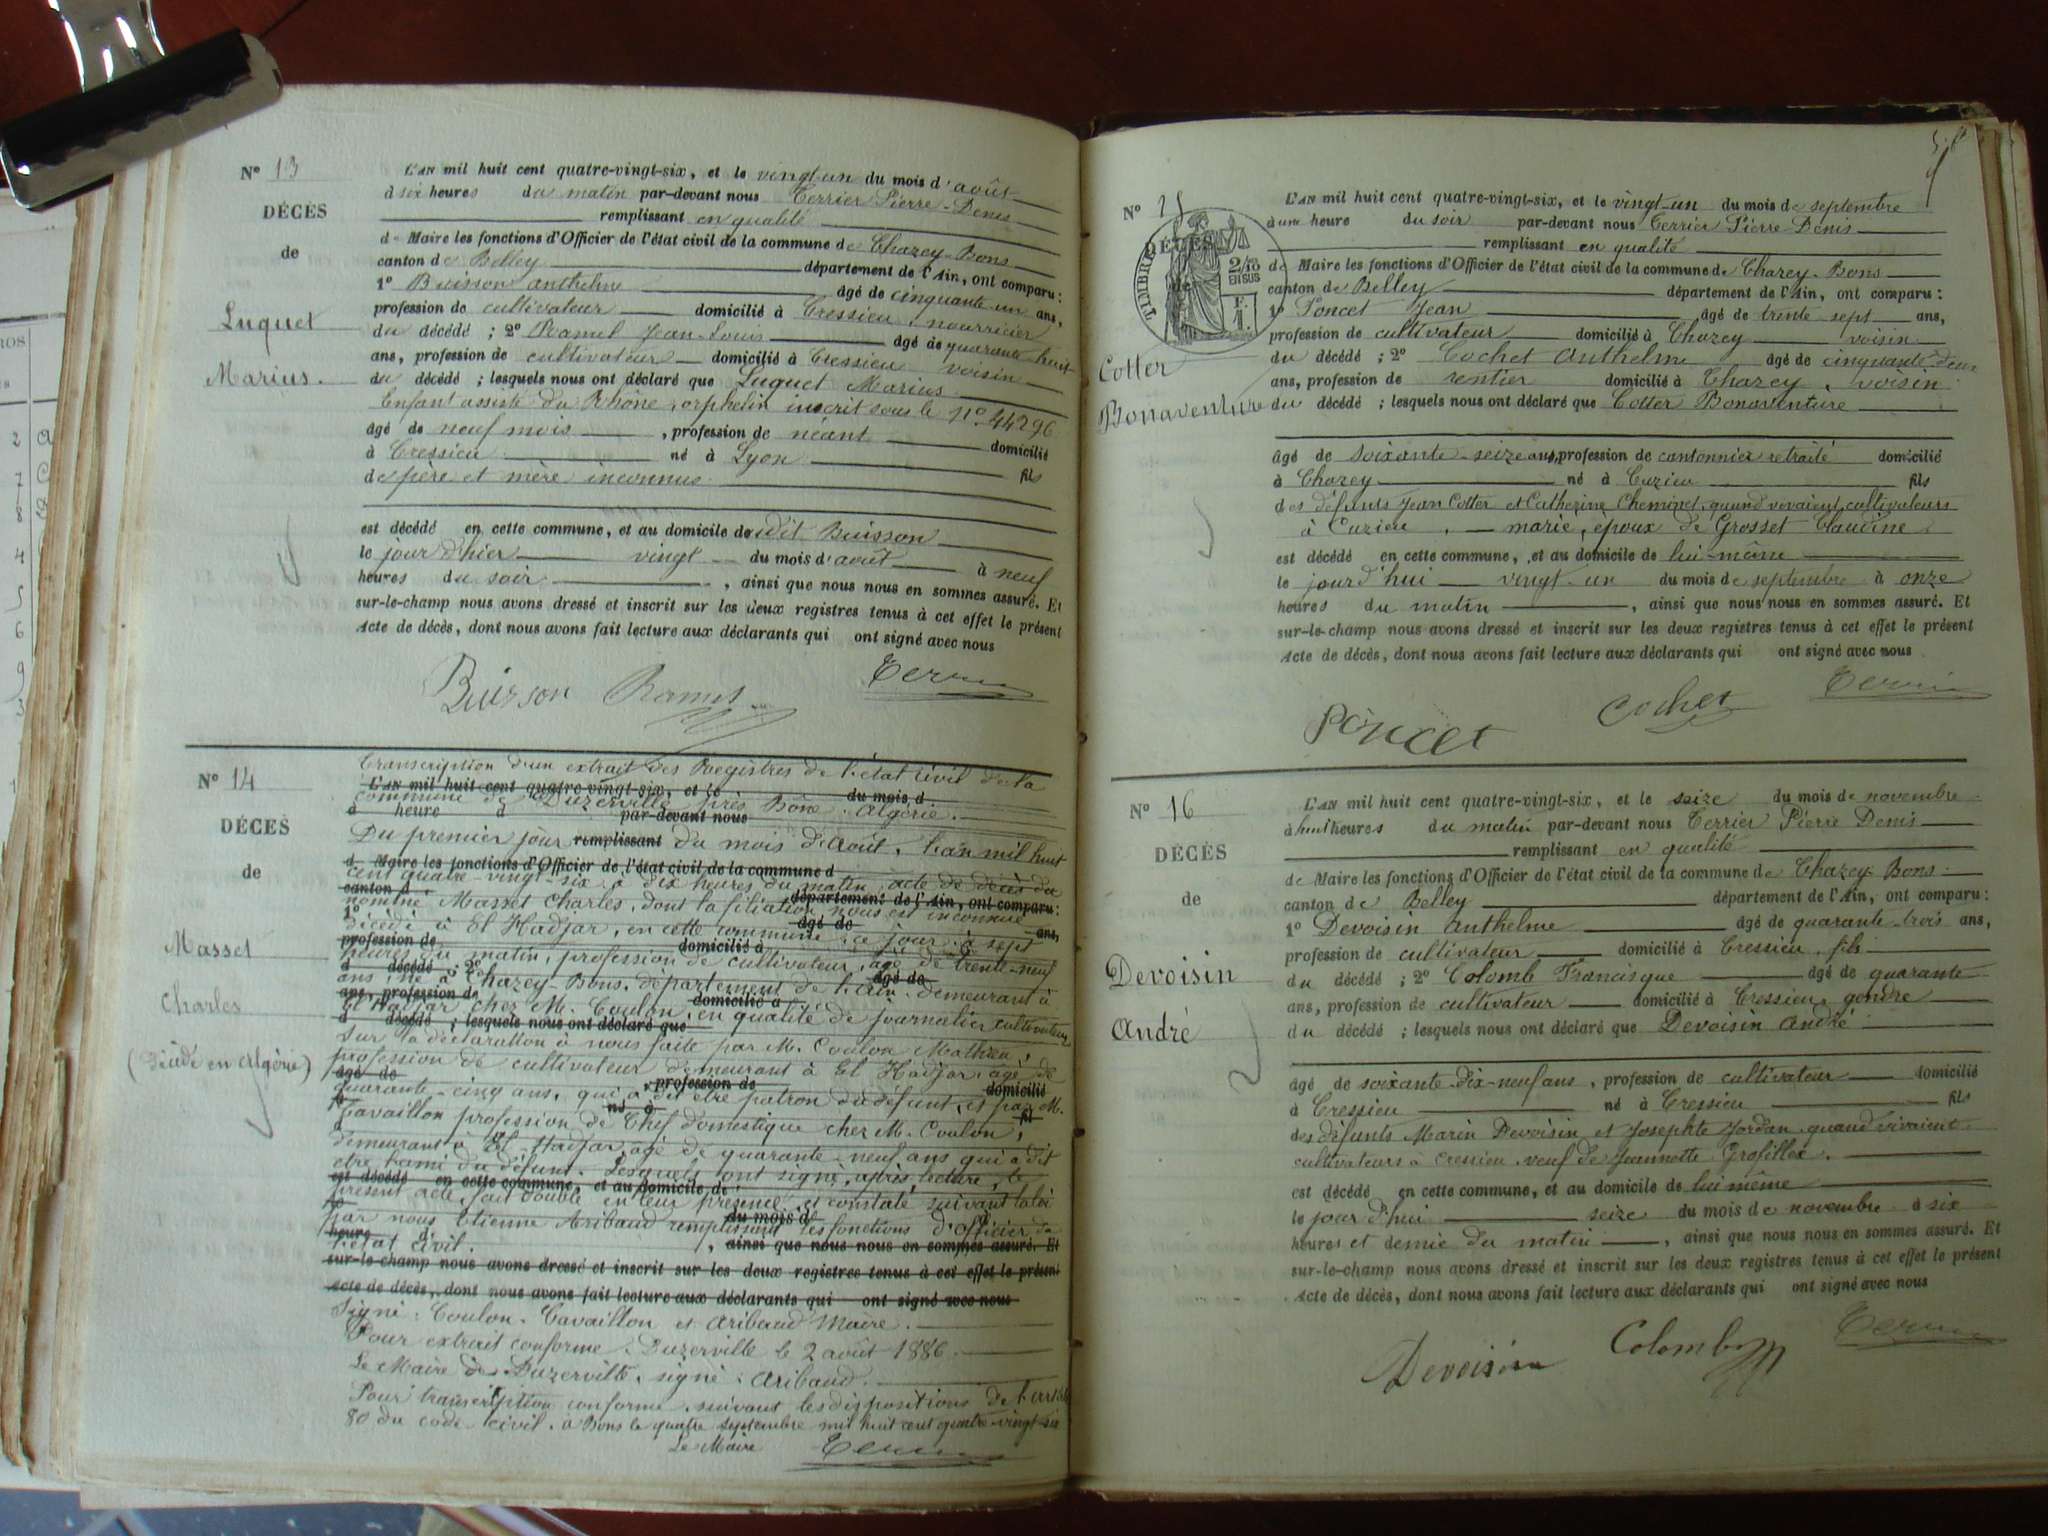 N° 13
DÉCÈS
de
Luquet
Marius.
L'AN mil huit cent quatre-vingt-six, et le vingt-un du mois d'août
à six heures du matin par-devant nous Terrier Pierre-Denis
remplissant en qualité
de Maire les fonctions d'Officier de l'état civil de la commune de Chazey-Bons
canton de Belley département de l'Ain, ont comparu :
1° Buisson anthelme âgé de cinquante-un ans,
profession de cultivateur domicilié à Cressieu, nourricier
du décédé ; 2° Ramel Jean-Louis âgé de quarante-huit
ans, profession de cultivateur domicilié à Cressieu voisin
du décédé ; lesquels nous ont déclaré que Luquet Marius
Enfant assisté du Rhône, orphelin inscrit sous le n° 44296
âgé de neuf mois , profession de néant domicilié
à Cressieu né à Lyon fils
de père et mère inconnus
est décédé en cette commune, et au domicile de dit Buisson
le jour d'hier vingt du mois d'août à neuf
heures du soir , ainsi que nous nous en sommes assuré. Et
sur-le-champ nous avons dressé et inscrit sur les deux registres tenus à cet effet le présent
Acte de décès, dont nous avons fait lecture aux déclarants qui ont signé avec nous
Buisson Ramel
N° 14
DÉCES
de
Massel
Charles
(Décédé en Algérie)
Transcription d'un extrait des Registres de l'état civil de la
L'AN mil huit cent quatre-vingt-six, et le du mois d
commune de Duzerville près Bône. Algérie.
à heure d par-devant nous
Du premier jour remplissant du mois d'août, l'an mil huit
d Maire les fonctions d'Officier de l'état civil de la commune d
cent quatre-vingt-six à dix heures du matin, acte de décès du
canton d département de l'Ain, ont comparu :
nommé Massel Charles, dont la filiation nous est inconnue
1° âgé de ans,
décédé à El Hadjar, en cette commune, ce jour à sept
profession de domicilié à
heures du matin, profession de cultivateur, âgé de trente-neuf
d décédé ; 2° âgé de
ans, né à Chazey-Bons, département de l'Ain, demeurant à
ans, profession de domicilié à
El Hadjar chez M. Coulon, en qualité de journalier cultivateur
d décédé ; lesquels nous ont déclaré que
Sur la déclaration à nous faite par M. Coulon Mathieu,
profession de cultivateur demeurant à El Hadjar, âgé de
âgé de , profession de domicilié
quarante-cinq ans, qui a dit être patron du défunt, et par M.
à né à fil
Cavaillon profession de Chef domestique chez M. Coulon,
demeurant à El-Hadjar, âgé de quarante-neuf ans qui a dit
être l'ami du défunt. Lesquels ont signé, après lecture, le
est décédé en cette commune, et au domicile de
présent acte, fait double en leur présence, et constaté, suivant la loi
le du mois d
par nous Etienne Aribaud remplissant les fonctions d'Officier de
heure
l'état civil. , ainsi que nous nous en sommes assuré. Et
sur-le-champ nous avons dressé et inscrit sur les deux registres tenus à cet effet le présent
Acte de décès, dont nous avons fait lecture aux déclarants qui ont signé avec nous
Signé : Coulon, Cavaillon et Aribaud Maire.
Pour extrait conforme. Duzerville le 2 août 1886.
Le Maire de Duzerville, signé : Aribaud.
Pour transcription conforme, suivant les dispositions de l'article
80 du code civil, à Bons le quatre septembre mil huit cent quatre-vingt-six
Le Maire
N° 15
TIMBRE
2/10
EN SUS
F.
1.
DÉCÈS
de
Cotter
Bonaventure
L'AN mil huit cent quatre-vingt-six, et le vingt-un du mois de septembre
à une heure du soir par-devant nous Terrier Pierre-Denis
remplissant en qualité
de Maire les fonctions d'Officier de l'état civil de la commune de Chazey-Bons
canton de Belley département de l'Ain, ont comparu :
1° Poncet Jean âgé de trente-sept ans,
profession de cultivateur domicilié à Chazey voisin
du décédé ; 2° Cochet Anthelme âgé de cinquante-deux
ans, profession de rentier domicilié à Chazey, voisin
du décédé ; lesquels nous ont déclaré que Cotter Bonaventure
âgé de soixante-seize ans, profession de cantonnier retraité domicilié
à Chazey né à Cuzieu fils
des défunts Jean Cotter et Catherine Cheminet, quand vivaient cultivateurs
à Cuzieu, marié, époux de Grosset Claudine
est décédé en cette commune, et au domicile de lui-même
le jour d'hui vingt-un du mois de septembre à onze
heures du matin , ainsi que nous nous en sommes assuré. Et
sur-le-champ nous avons dressé et inscrit sur les deux registres tenus à cet effet le présent
Acte de décès, dont nous avons fait lecture aux déclarants qui ont signé avec nous
Poncet Cochet
N° 16
DÉCÈS
de
Devoisin
André
L'AN mil huit cent quatre-vingt-six, et le seize du mois de novembre
à huit heures du matin par-devant nous Terrier Pierre Denis
remplissant en qualité
de Maire les fonctions d'Officier de l'état civil de la commune de Chazey-Bons
canton de Belley département de l'Ain, ont comparu :
1° Devoisin Anthelme âgé de quarante-trois ans,
profession de cultivateur domicilié à Cressieu, fils
du décédé ; 2° Colomb Francisque âgé de quarante
ans, profession de cultivateur domicilié à Cressieu, gendre
du décédé ; lesquels nous ont déclaré que Devoisin André
âgé de soixante-dix-neuf ans , profession de cultivateur domicilié
à Cressieu né à Cressieu fils
des défunts Marin Devoisin et Josephte Jordan quand vivaient
cultivateurs à Cressieu, veuf de Jeannette Grosillex.
est décédé en cette commune, et au domicile de lui même
le jour d'hui seize du mois de novembre à six
heures et demie du matin , ainsi que nous nous en sommes assuré. Et
sur-le-champ nous avons dressé et inscrit sur les deux registres tenus à cet effet le présent
Acte de décès, dont nous avons fait lecture aux déclarants qui ont signé avec nous
Devoisin Colomb